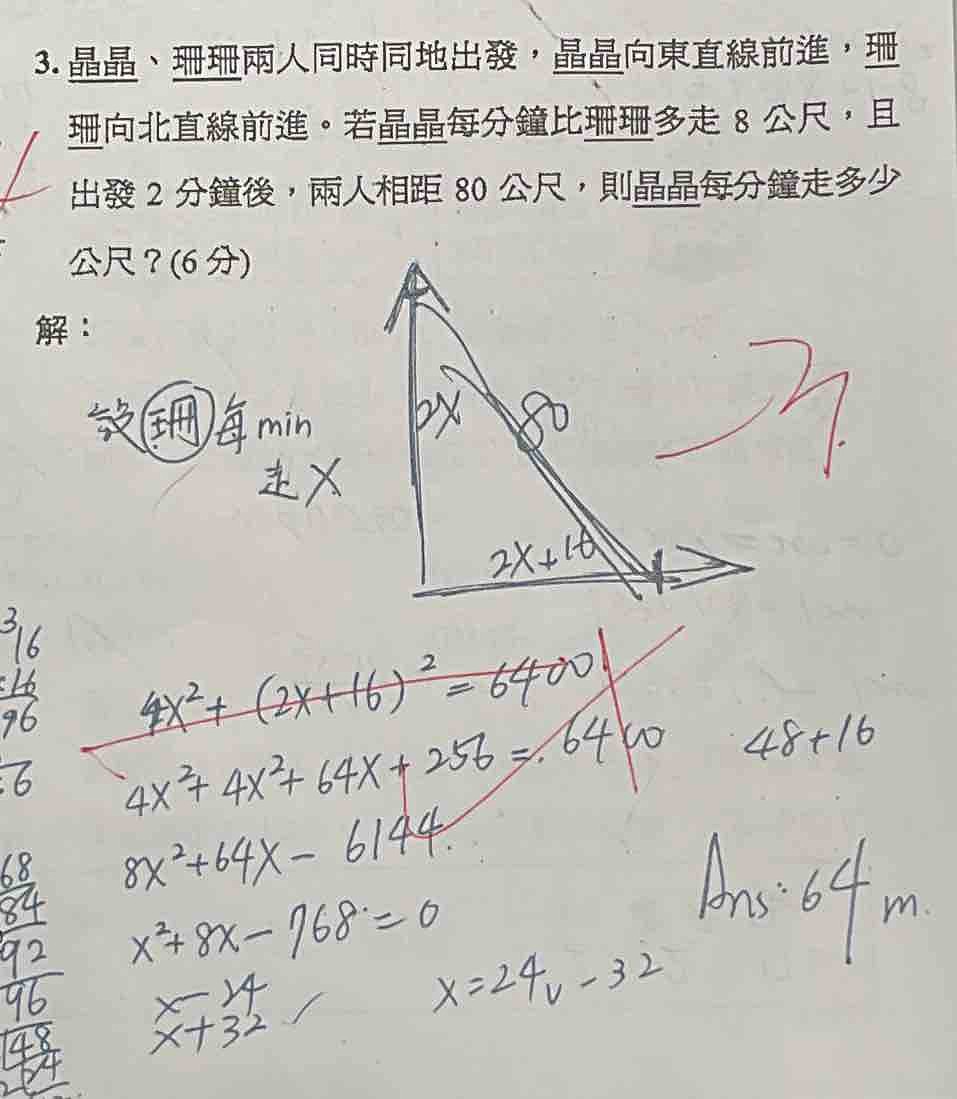 3. 晶晶、珊珊兩人同時同地出發，晶晶向東直線前進，珊
珊向北直線前進。若晶晶每分鐘比珊珊多走 8 公尺，且
出發 2 分鐘後，兩人相距 80 公尺，則晶晶每分鐘走多少
公尺？(6 分)
解：
設珊每min
走X
2X
80
2X+16
4X²+(2X+16)²=6400
4X²+4X²+64X+256=6400
8X²+64X-6144
X²+8X-768=0
X-24
X+32
X=24, -32
48+16
Ans:64m.
3
16
16
96
68
84
92
96
148